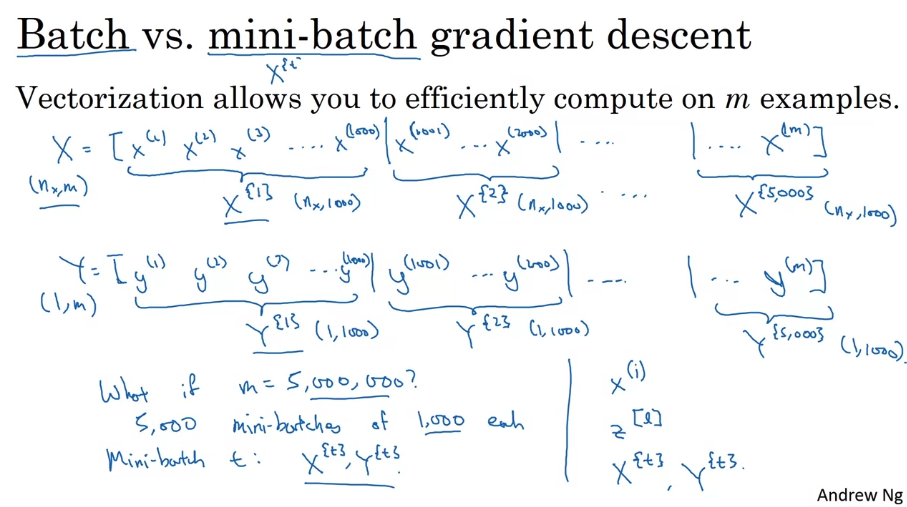 Batch vs. mini-batch gradient descent
X^{t}
Vectorization allows you to efficiently compute on m examples.
X = [x^(1) x^(2) x^(3) .... x^(1000) | x^(1001) ... x^(2000) | .... | .... x^(m)]
(n_x, m)
X^{1} (n_x, 1000) X^{2} (n_x, 1000) .... X^{5,000} (n_x, 1000)
Y = [y^(1) y^(2) y^(3) ... y^(1000) | y^(1001) ... y^(2000) | ---- | ... y^(m)]
(1, m)
Y^{1} (1, 1000) Y^{2} (1, 1000) Y^{5,000} (1, 1000).
What if m = 5,000,000?
5,000 mini-batches of 1,000 each
Mini-batch t: X^{t}, Y^{t}.
x^(i)
z^[l]
X^{t}, Y^{t}.
Andrew Ng